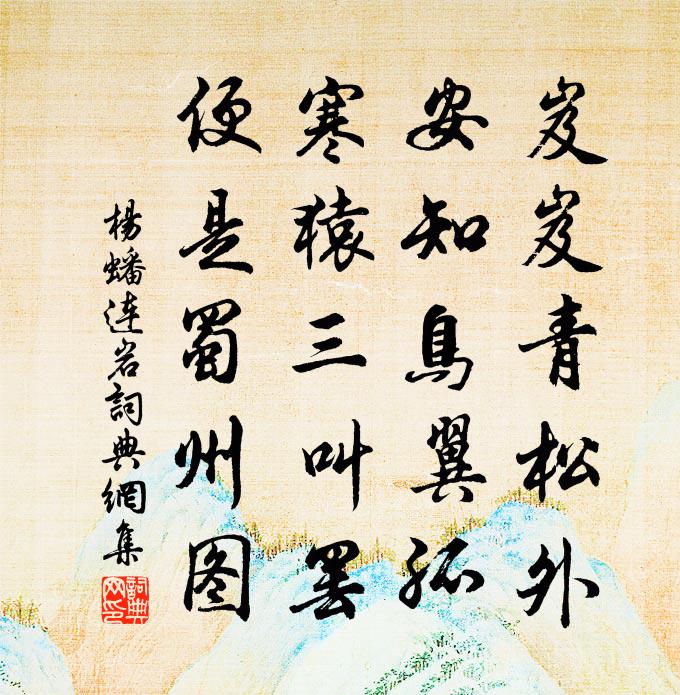 岌岌青松外
安知鳥翼孤
寒猿三叫罢
便是蜀州图
楊蟠连岩詞典網集
詞典网印